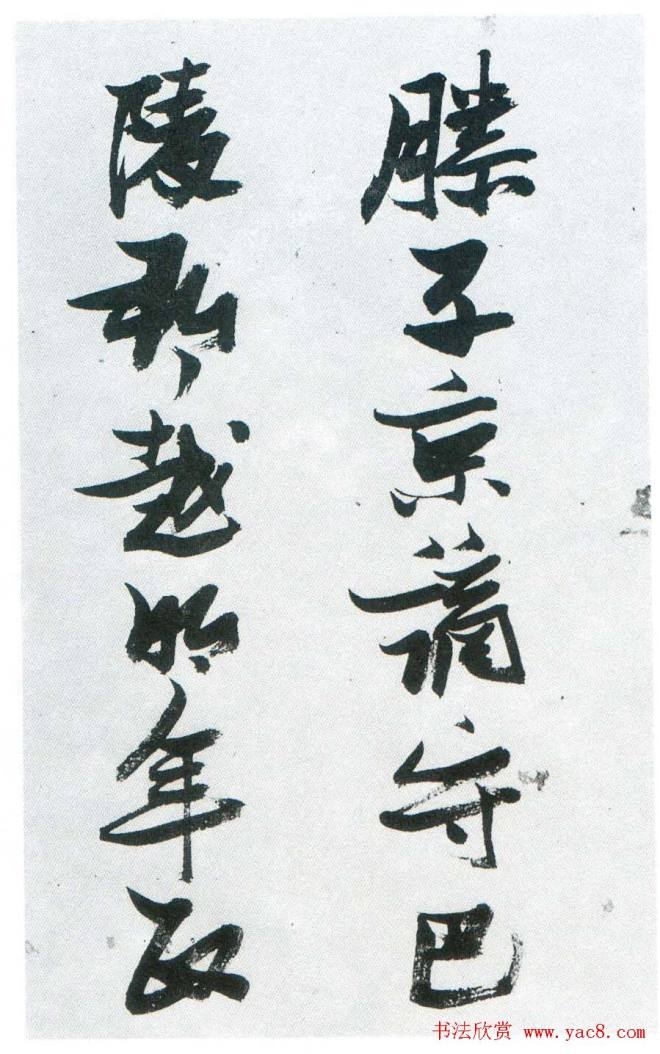 滕子京謫守巴
陵郡越明年政
书法欣赏 www.yac8.com